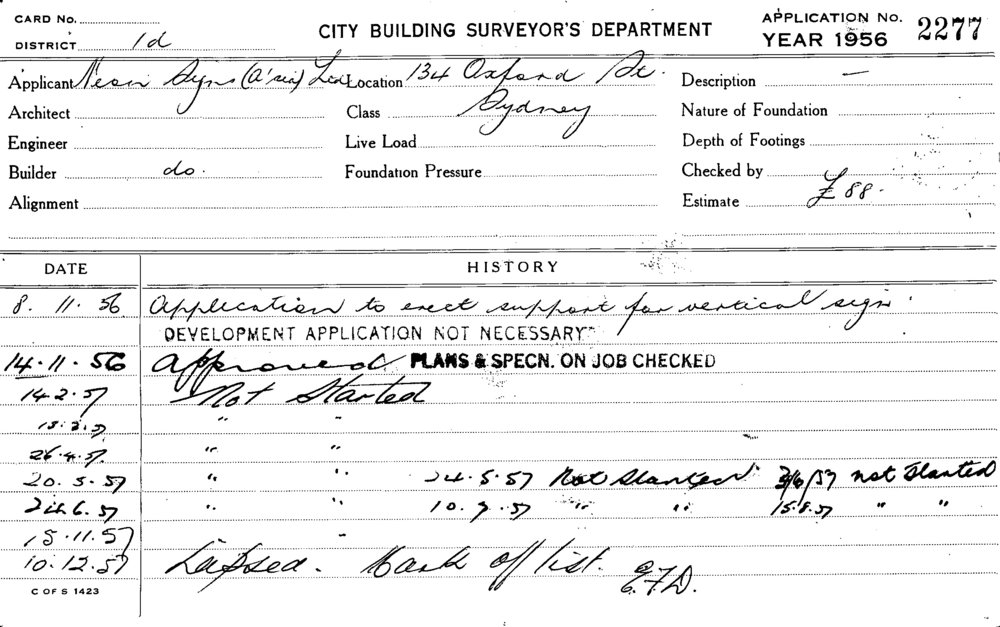 CARD No.
DISTRICT 1d
CITY BUILDING SURVEYOR'S DEPARTMENT
APPLICATION No. 2277
YEAR 1956
Applicant Neon Signs (A'sia) Ltd Location 134 Oxford St. Description —
Architect Class Sydney Nature of Foundation
Engineer Live Load Depth of Footings
Builder do. Foundation Pressure Checked by
Alignment Estimate £ 88.
DATE HISTORY
8. 11. 56 Application to erect support for vertical sign.
DEVELOPMENT APPLICATION NOT NECESSARY
14.11.56 Approved PLANS & SPECN. ON JOB CHECKED
14.2.57 Not Started
" "
26.4.57 " "
20.5.57 " " 24.5.57 Not Started 3/6/57 not Started
24.6.57 " " 10.7.57 " " 15.8.57 " "
15.11.57 "
10.12.57 Lapsed. Mark off list. E.F.D.
C OF S 1423